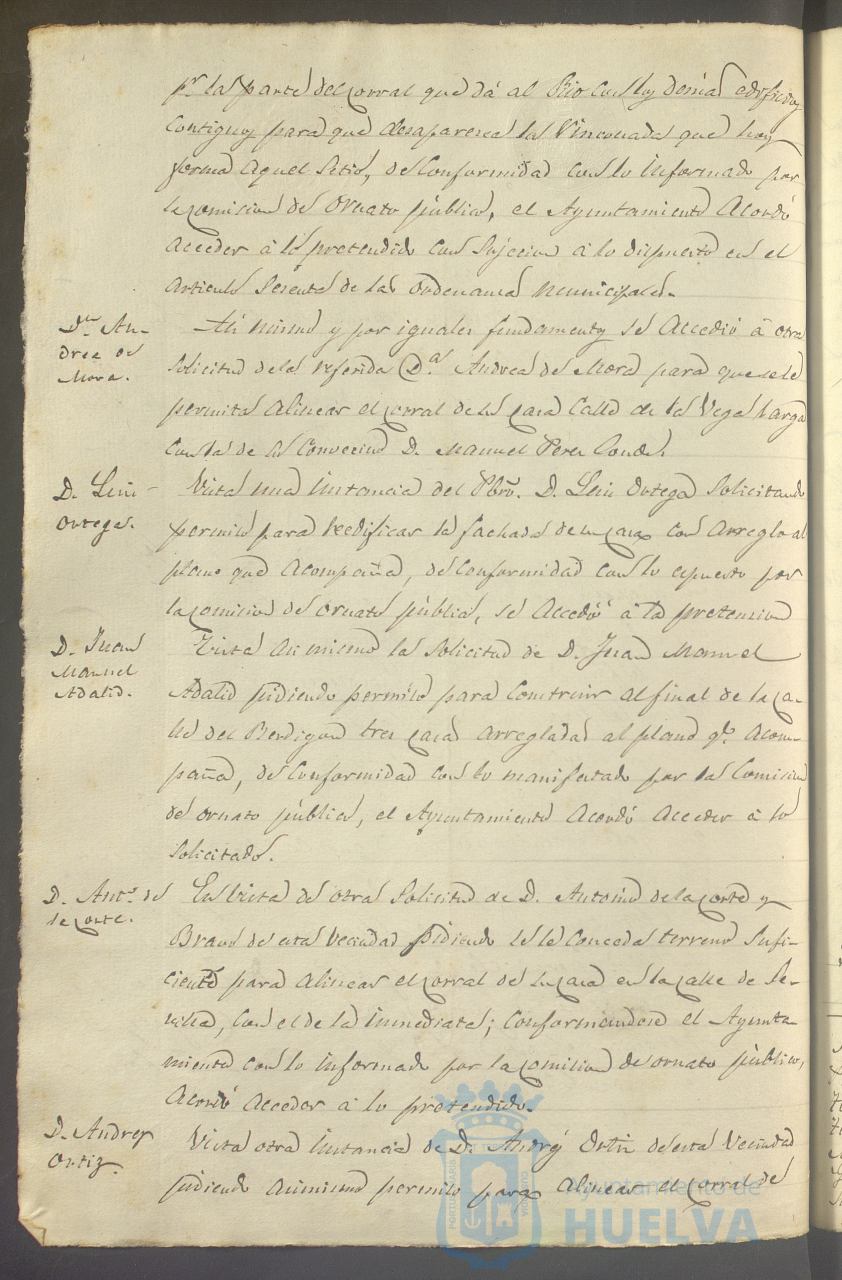 pr. la parte del corral que dá al Rio con los demas edificios
contiguos para que desaparesca la rinconada que hoy
forma aquel sitio, de conformidad con lo informado por
la comision de ornato público, el Ayuntamiento acordó
acceder á lo pretendido con sujecion á lo dispuesto en el
articulo sesenta de las ordenanzas municipales.
Da. An-
drea de
Mora.
Asi mismo y por iguales fundamentos se accedió á otra
solicitud de la referida Da. Andrea de Mora para que se le
permita alinear el corral de su casa calle de la Vega larga
con la de su convecino D. Manuel Perez Conde.
D. Luis
Ortega.
Vista una instancia del Pbro. D. Luis Ortega solicitando
permiso para reedificar la fachada de su casa con arreglo al
plano que acompaña, de conformidad con lo espuesto por
la comision de ornato público, se accedió á la pretension
D. Juan
Manuel
Adalid.
Vista asi mismo la solicitud de D. Juan Manuel
Adalid pidiendo permiso para construir al final de la ca-
lle del Berdigon tres casas arregladas al plano qe. acom-
paña, de conformidad con lo manifestado por la comision
de ornato público, el Ayuntamiento acordó acceder á lo
solicitado.
D. Anto. de
la Corte.
En vista de otra solicitud de D. Antonio de la Corte y
Bravo de esta vecindad pidiendo se le conceda terreno sufi-
ciente para alinear el corral de su casa en la calle de Se-
villa, con el de la inmediata; conformandose el Ayunta-
miento con lo informado por la comision de ornato público,
acordó acceder á lo pretendido.
D. Andres
Ortiz.
Vista otra instancia de D. Andres Ortiz de esta vecindad
pidiendo asimismo permiso para alinear el corral de
Ayuntamiento de
HUELVA